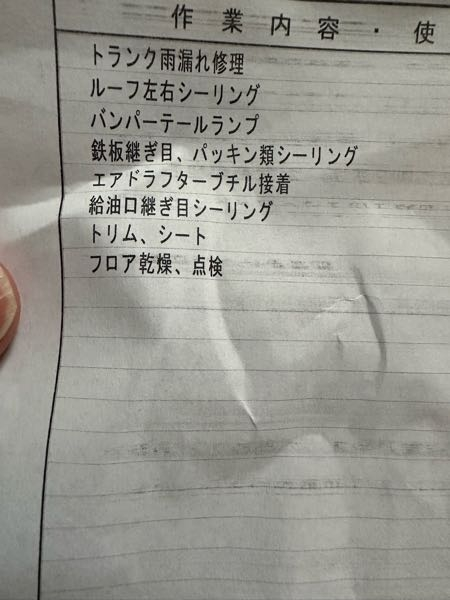 作業内容・使
トランク雨漏れ修理
ルーフ左右シーリング
バンパーテールランプ
鉄板継ぎ目、パッキン類シーリング
エアドラフターブチル接着
給油口継ぎ目シーリング
トリム、シート
フロア乾燥、点検